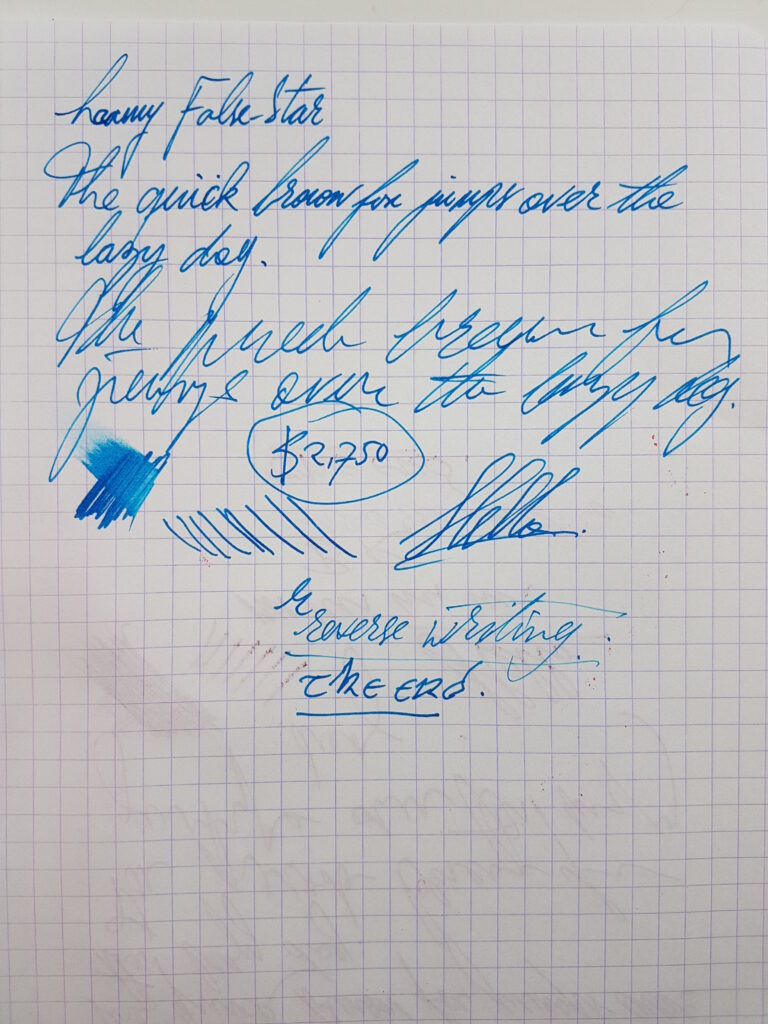 hammy False-Star
The quick brown fox jumps over the
lazy dog.
The quick brown fox
jumps over the lazy dog.
$2,750
Hello.
reverse writing.
THE END.